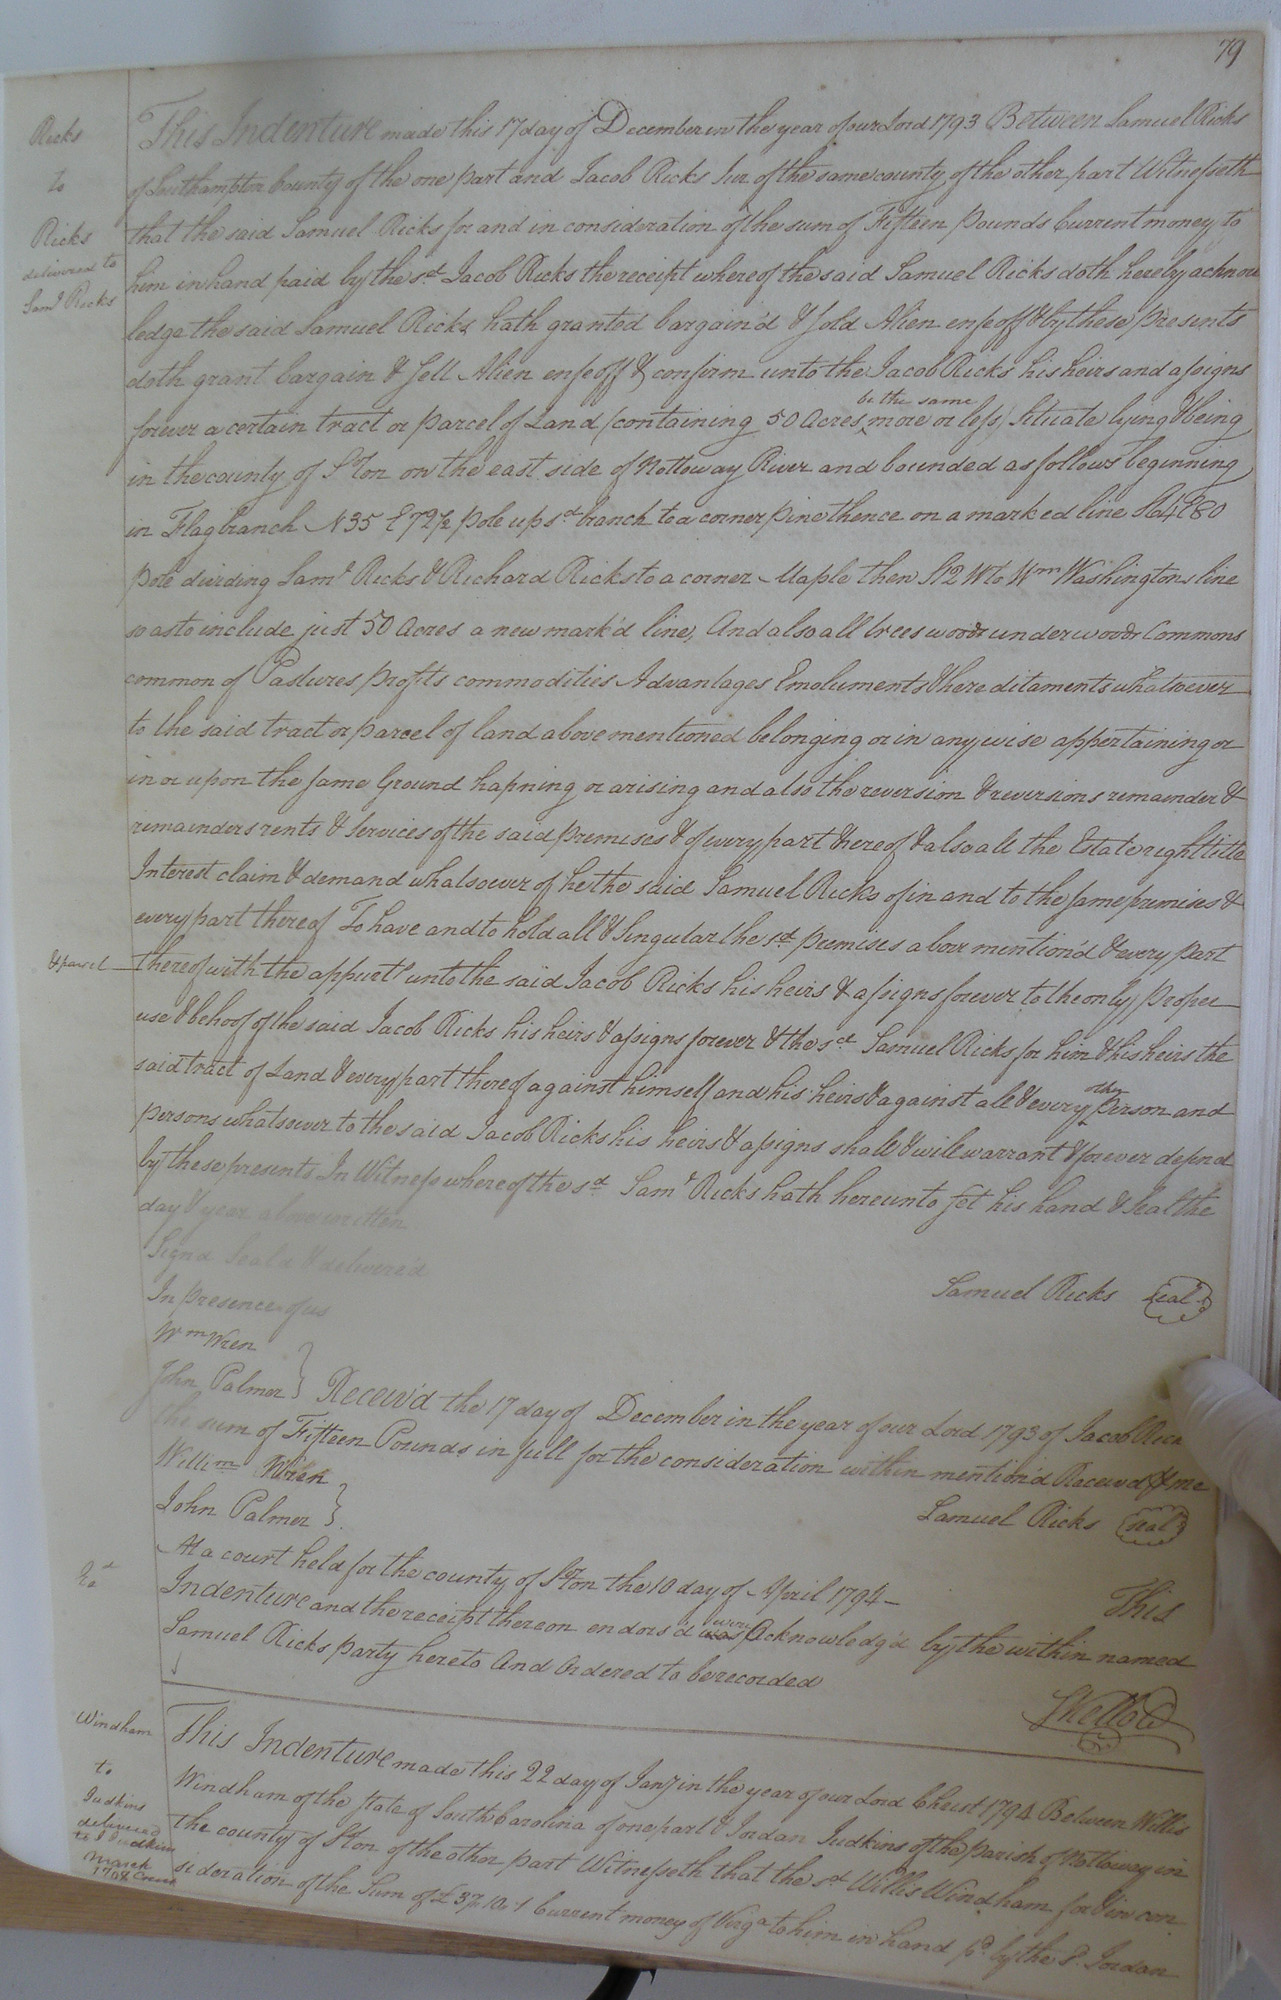 79
Ricks
to
Ricks
delivered to
Saml Ricks
This Indenture made this 17 day of December in the year of our Lord 1793 Between Samuel Ricks
of Southampton County of the one part and Jacob Ricks Jur of the same county of the other part Witnesseth
that the said Samuel Ricks for and in consideration of the sum of Fifteen pounds Current money to
him in hand paid by the sd Jacob Ricks the receipt whereof the said Samuel Ricks doth hereby acknow
ledge the said Samuel Ricks hath granted bargain'd & sold Alien enfeoff & by these presents
doth grant bargain & Sell Alien enfeoff & confirm unto the Jacob Ricks his heirs and assigns
forever a certain tract or parcel of Land (containing 50 Acres be the same more or less) Situate lying & being
in the county of Sºton on the east side of Nottoway River and bounded as follows beginning
in Flag branch N35 E 72½ pole up sd branch to a corner pine thence on a marked line S64E80
pole dividing Saml Ricks & Richard Ricks to a corner Maple then S12 W to Wm Washingtons line
so as to include just 50 Acres a new mark'd line, And also all trees woods underwoods Commons
common of Pastures profits commodities Advantages Emoluments & hereditaments whatsoever
to the said tract or parcel of land above mentioned belonging or in any wise appertaining or
in or upon the same Ground hapning or arising and also the reversion & reversions remainder &
remainders rents & Services of the said premises & of every part thereof & also all the Estate right title
Interest claim & demand whatsoever of he the said Samuel Ricks of in and to the same premises &
every part thereof To have and to hold all & Singular the sd premises above mention'd & every part
& parcel thereof with the appurts unto the said Jacob Ricks his heirs & assigns forever to the only proper
use & behoof of the said Jacob Ricks his heirs & assigns forever & the sd Samuel Ricks for him & his heirs the
said tract of Land & every part thereof against himself and his heirs & against all & every other person and
persons whatsoever to the said Jacob Ricks his heirs & assigns shall & will warrant & forever defend
by these presents In Witness whereof the sd Saml Ricks hath hereunto set his hand & Seal the
day & year above written
Sign'd Seal'd & deliver'd
In presence of us
Samuel Ricks seal
Wm Wren
John Palmer } Receiv'd the 17 day of December in the year of our Lord 1793 of Jacob Ricks
the sum of Fifteen Pounds in full for the consideration within mention'd Received P me
Willim Wren
John Palmer }
Samuel Ricks seal
At a court held for the county of Sºton the 10 day of April 1794 – This
Indenture and the receipt thereon endors'd was were Acknowledg'd by the within named
Samuel Ricks party hereto And Ordered to be recorded
Windham
to
Judkins
delivered
to J Judkins
March
This Indenture made this 22 day of Jany in the year of our Lord Christ 1794 Between Willis
Windham of the State of South Carolina of one part & Jordan Judkins of the parish of Nottoway in
the county of Sºton of the other part Witnesseth that the sd Willis Windham for & in con
sideration of the Sum of £37. Current money of Virga to him in hand pd by the sd Jordan